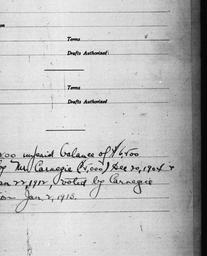 Terms
Drafts Authorized:
Terms
Drafts Authorized
unpaid balance of $6,500
by Mr. Carnegie ($5,000) Dec 20, 1904 &
Jan 22, 1912, voted by Carnegie
Jan 2, 1913.